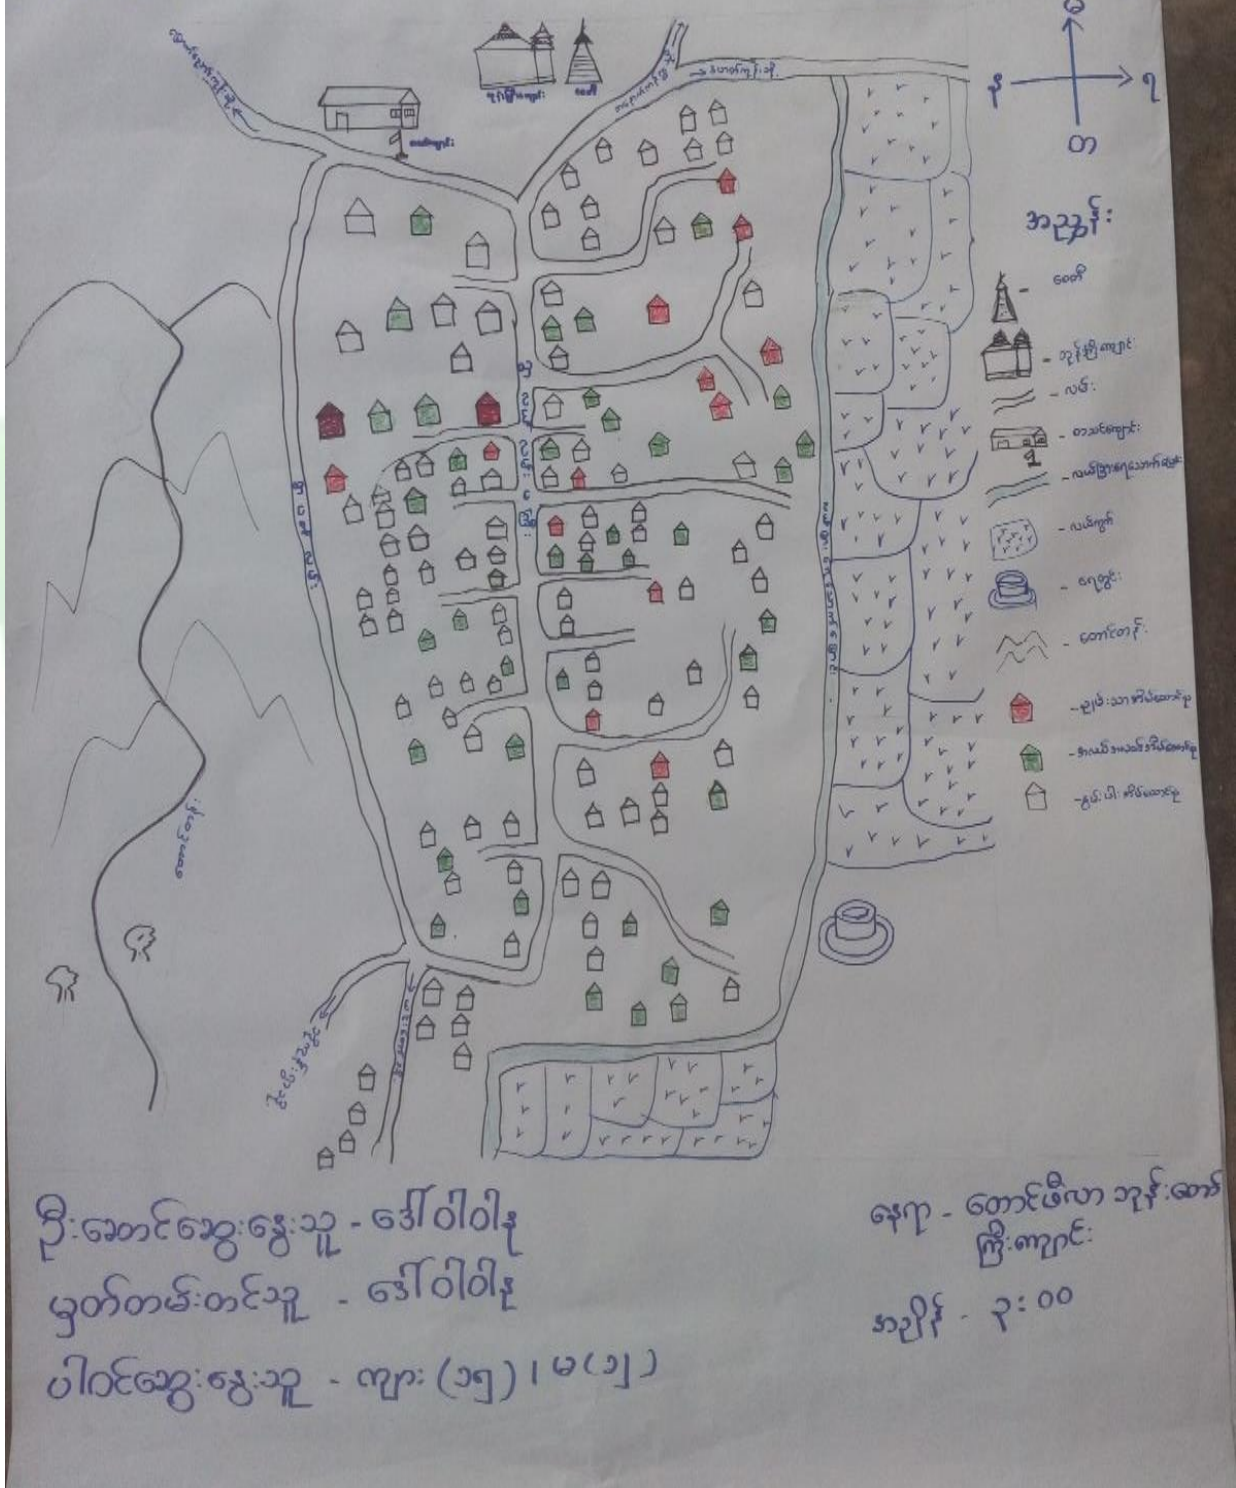 မ
န
ရ
တ
အညွှန်း
စေတီ
ဘုန်းကြီးကျောင်း
စေတီ
- ဘုန်းကြီးကျောင်း
- လမ်း
စာသင်ကျောင်း
- စာသင်ကျောင်း
- လယ်ကွက်
- ရေတွင်း
- တောင်တန်း
- ချမ်းသာအိမ်ထောင်စု
- အလယ်အလတ်အိမ်ထောင်စု
- နွမ်းပါးအိမ်ထောင်စု
ဦးဆောင်ဆွေးနွေးသူ - ဒေါ်ဝါဝါနု
မှတ်တမ်းတင်သူ - ဒေါ်ဝါဝါနု
ပါဝင်ဆွေးနွေးသူ - ကျား (၁၅) ၊ မ (၁၂)
နေရာ - တောင်ဖီလာ ဘုန်းတော်
ကြီးကျောင်း
အချိန် - ၃:၀၀